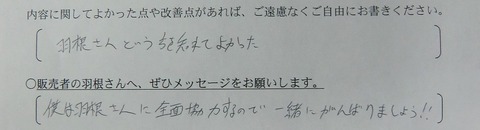 内容に関してよかった点や改善点があれば、ご遠慮なくご自由にお書きください。
羽根さんという方を知れてよかった
○販売者の羽根さんへ、ぜひメッセージをお願いします。
僕は羽根さんに全面協力するので一緒にがんばりましょう!!